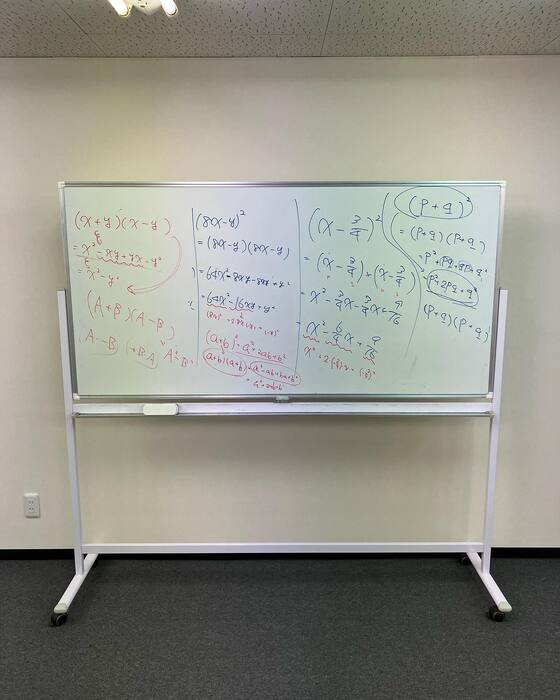 (x+y)(x-y)
= x² - xy + yx - y²
= x² - y²
(A+B)(A-B)
A-B
A²-B²
(8x-y)²
= (8x-y)(8x-y)
= 64x² - 8xy - 8xy + y²
= 64x² - 16xy + y²
(a+b)² = a² + 2ab + b²
(a+b)(a+b) = a² + ab + ba + b²
(x - 3/4)²
= (x - 3/4)(x - 3/4)
= x² - 3/4x - 3/4x + 9/16
= x² - 6/4x + 9/16
(p+q)²
= (p+q)(p+q)
= p² + pq + qp + q²
= p² + 2pq + q²
(p+q)(p+q)